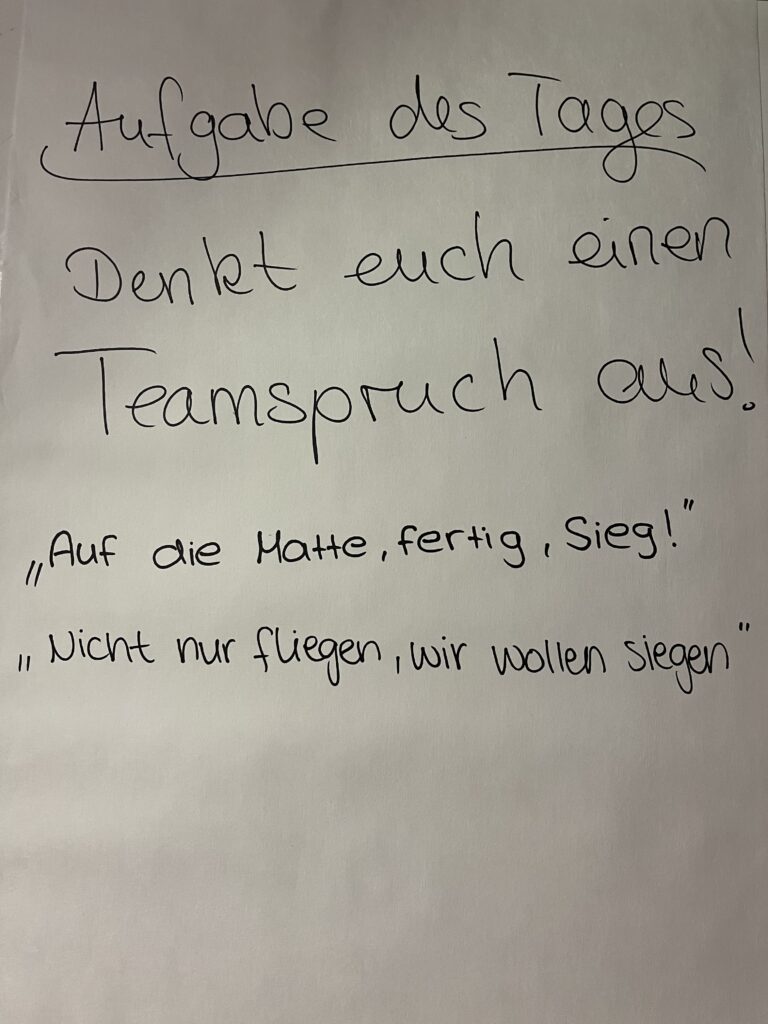 Aufgabe des Tages
Denkt euch einen
Teamspruch aus!
„Auf die Matte, fertig, Sieg!"
„Nicht nur fliegen, wir wollen siegen"